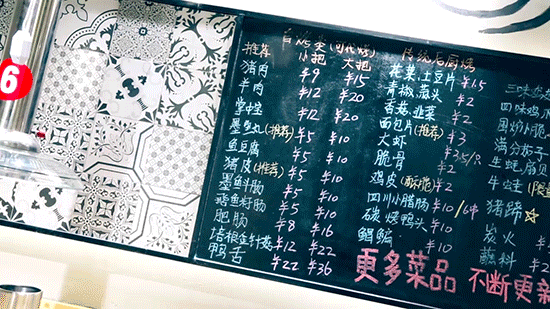 6
自烤类(可代烤)
推荐 小把 大把
猪肉 ¥9 ¥15
牛肉 ¥12 ¥20
¥12 ¥20
墨鱼丸(推荐) ¥5 ¥10
鱼豆腐 ¥5 ¥10
猪皮(推荐) ¥5 ¥10
墨鱼籽肠 ¥5 ¥10
鳕鱼籽肠 ¥5 ¥10
肥肠 ¥8 ¥16
培根金针菇 ¥12 ¥22
鸭舌 ¥22 ¥36
传统后厨烧
花菜、土豆片 ¥1.5
青椒、藠头 ¥2
香菇、韭菜 ¥2
面包片(推荐) ¥3
大虾 ¥35/R
脆骨 ¥2
鸡皮(酥脆) ¥2
四川小腊肠 ¥10/6串
碳烤鸭头 ¥10
鲳鳊 ¥10
三味
四味鸡
围炉小脆
满分柿子
生蚝、扇贝
牛蛙
猪蹄
炭火
蘸料 ¥2
更多菜品 不断更新